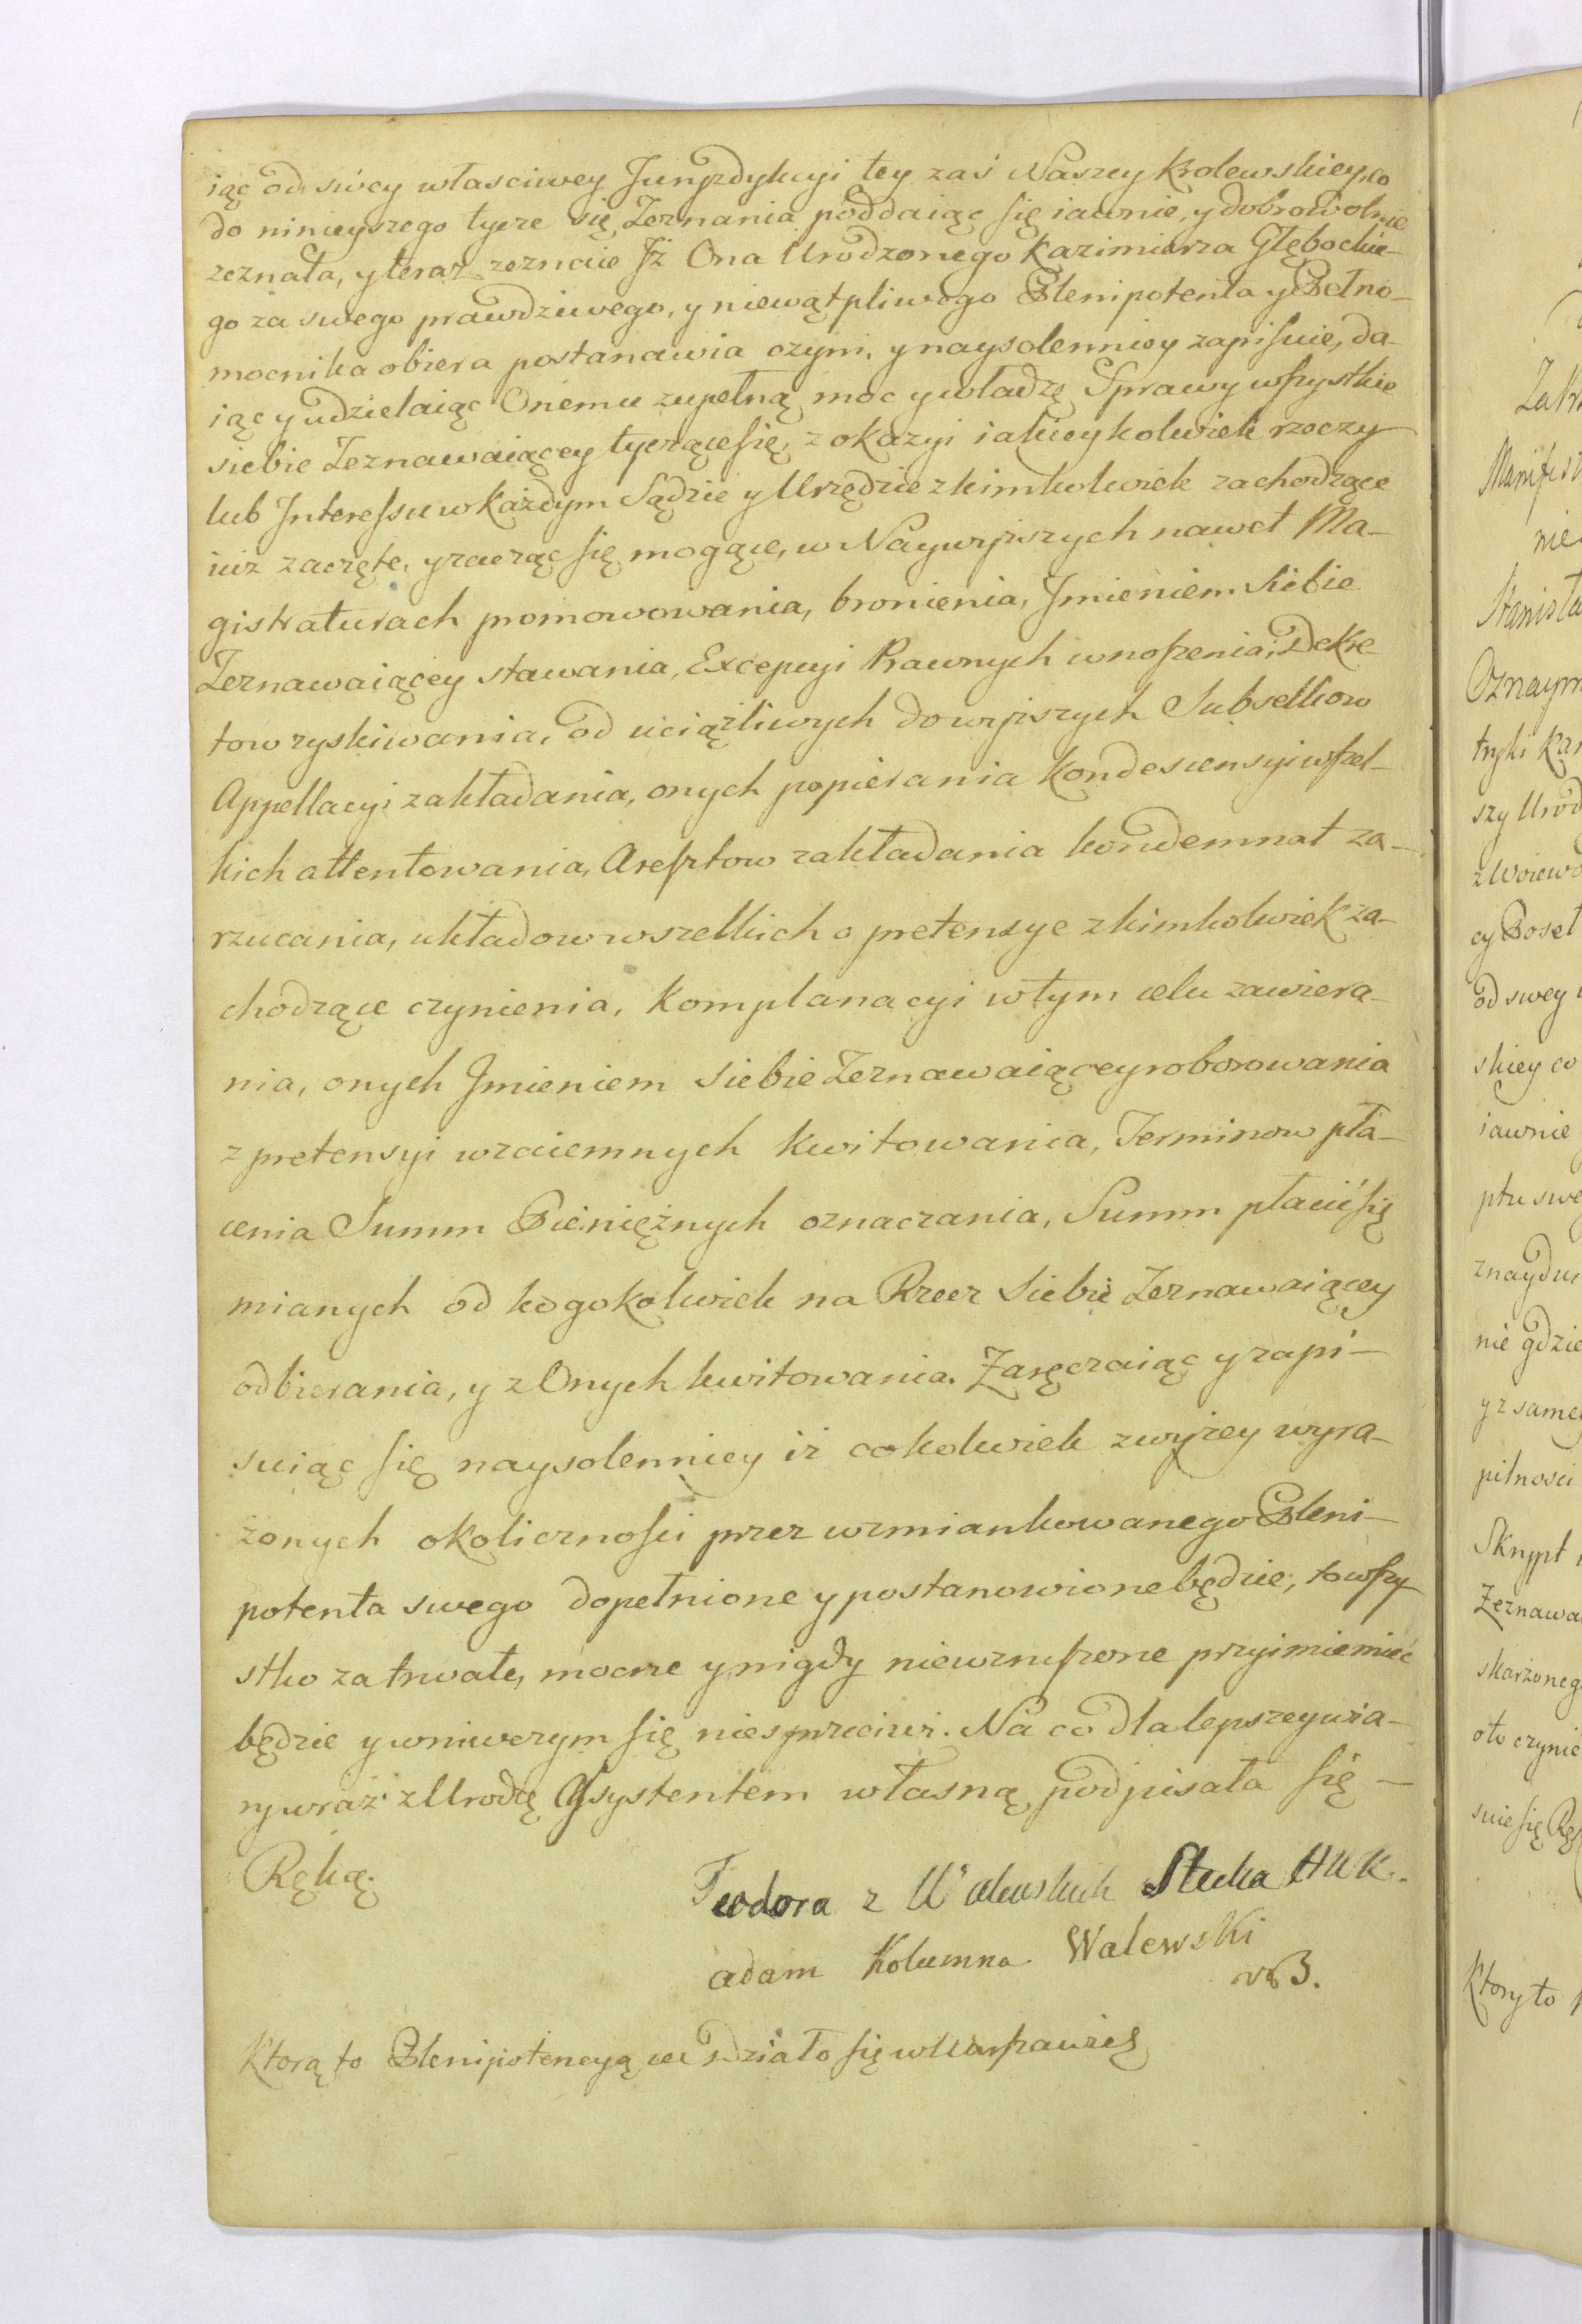 iąc od swey własciwey Juryzdykcyi tey zaś Naszey Krolewskiey co
do ninieyszego tycze się Zeznania poddaiąc się iawnie, y dobrowolnie
zeznała, y teraz zeznaie Jż Ona Urodzonego Kazimierza Głębockie-
go za swego prawdziwego, y niewątpliwego Plenipotenta y Pełno-
mocnika obiera postanawia czyni, y naysolenniey zapisuie, da-
iąc y udzielaiąc Onemu zupełną moc y władzę Sprawy wszystkie
siebie Zeznawaiącey tyczące się, z okazyi iakieykolwiek rzeczy
lub Interessu w każdym Sądzie y Urzędzie z kimkolwiek zachodzące
iuż zaczęte, y zacząc się mogące, w Naywyższych nawet Ma-
gistraturach promowowania, bronienia, Jmieniem Siebie
Zeznawaiącey stawania, Excepcyi Prawnych wnoszenia, Dekre-
tow zyskiwania, od uciążliwych do wyższych Subselliow
Appellacyi zakładania, onych popierania Kondescensyi wszel-
kich attentowania, Aresztow zakładania kondemnat za-
rzucania, układow wszelkich o pretensye z kimkolwiek za-
chodzące czynienia, Komplanacyi w tym celu zawiera-
nia, onych Jmieniem siebie Zeznawaiącey roborowania
z pretensyi wzaiemnych kwitowania, Terminow pła-
cenia Summ Pieniężnych oznaczania, Summ płacić się
mianych od kogokolwiek na Rzecz Siebie Zeznawaiącey
odbierania, y z Onych kwitowania. Zaręczaiąc y zapi-
suiąc się naysolenniey iż cokolwiek z wyżey wyra-
żonych okolicznosci przez wzmiankowanego Pleni-
potenta swego dopełnione y postanowione będzie, to wszy
stko za trwałe, mocne y nigdy niewzruszone przyimie mieć
będzie y w niwczym się nie sprzeciwi. Na co dla lepszey wia-
ry wraz z Urodzę Assystentem własną podpisała się -
Ręką.
Teodora z Walewskich Stecka
adam Kolumna Walewski
Ktorą to Plenipotencyą działo się w Warszawie
Manifest
nie
Stanisła
Oznaym
szy Urod
z Woiewo
cy Poseł
od swey
skiey co
iawnie
ptu swe
znaydu
nie gdzie
y z samey
pilnosci
Skrypt
Zeznawa
skarżoneg
oto czynie
suie się Rę
Ktory to